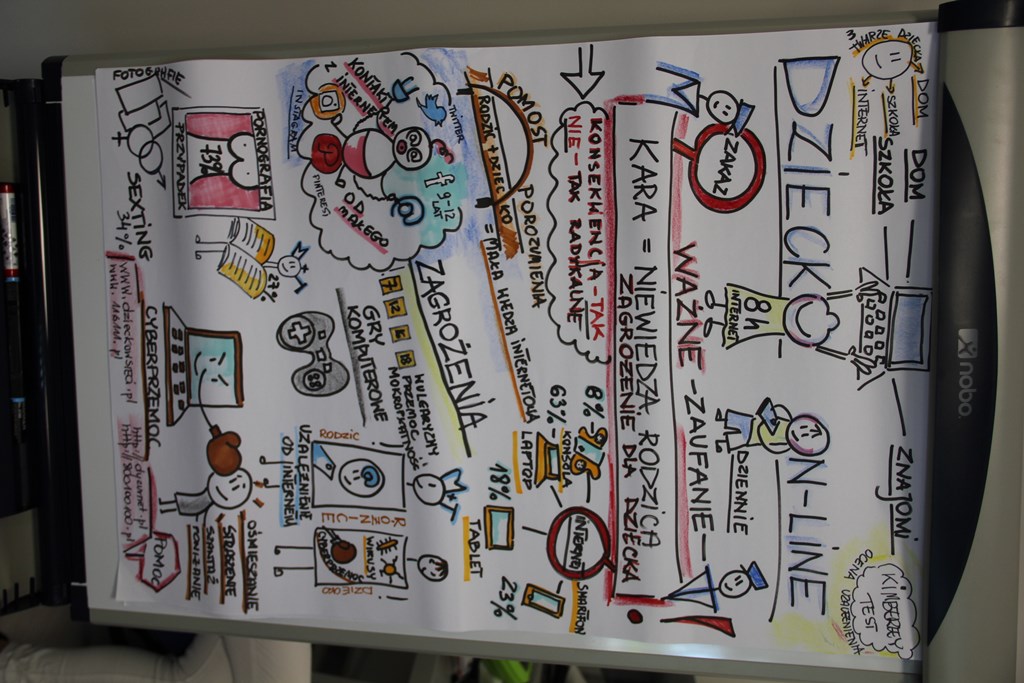 3 TWARZE DZIECKA
DOM
SZKOŁA
INTERNET
DOM
SZKOŁA
ZNAJOMI
KIMBERLY
TEST
OCENA
UZALEŻNIENIA
DZIECKO ON-LINE
INTERNET
8h
DZIENNIE
ZAKAZ
WAŻNE - ZAUFANIE -
KARA = NIEWIEDZA RODZICA
ZAGROŻENIE DLA DZIECKA
KONSEKWENCJA - TAK
NIE - TAK RADYKALNE
POMOST POROZUMIENIA
RODZIC + DZIECKO = MAŁA WIEDZA INTERNETOWA
8%
KONSOLA
63%
LAPTOP
18%
TABLET
INTERNET
SMARTFON
23%
ZAGROŻENIA
KONTAKT
Z INTERNETEM
TWITTER
INSTAGRAM
PINTEREST
f 9-12
LAT
OD
MAŁEGO
7 12 16 18
WULGARYZMY
PRZEMOC
GRY
KOMPUTEROWE
RODZIC
UZALEŻNIENIE
OD INTERNETU
RÓŻNICE
WIRUSY
CYBERPRZEMOC
DZIECKO
PORNOGRAFIA
73%
PRZYPADEK
27%
FOTOGRAFIE
SEXTING
34%
CYBERPRZEMOC
OŚMIESZANIE
STRASZENIE
SZANTAŻ
PONIŻANIE
www.dzieckowsieci.pl
www.116111.pl
http://dyzurnet.pl
http://800100100.pl
POMOC
nobo